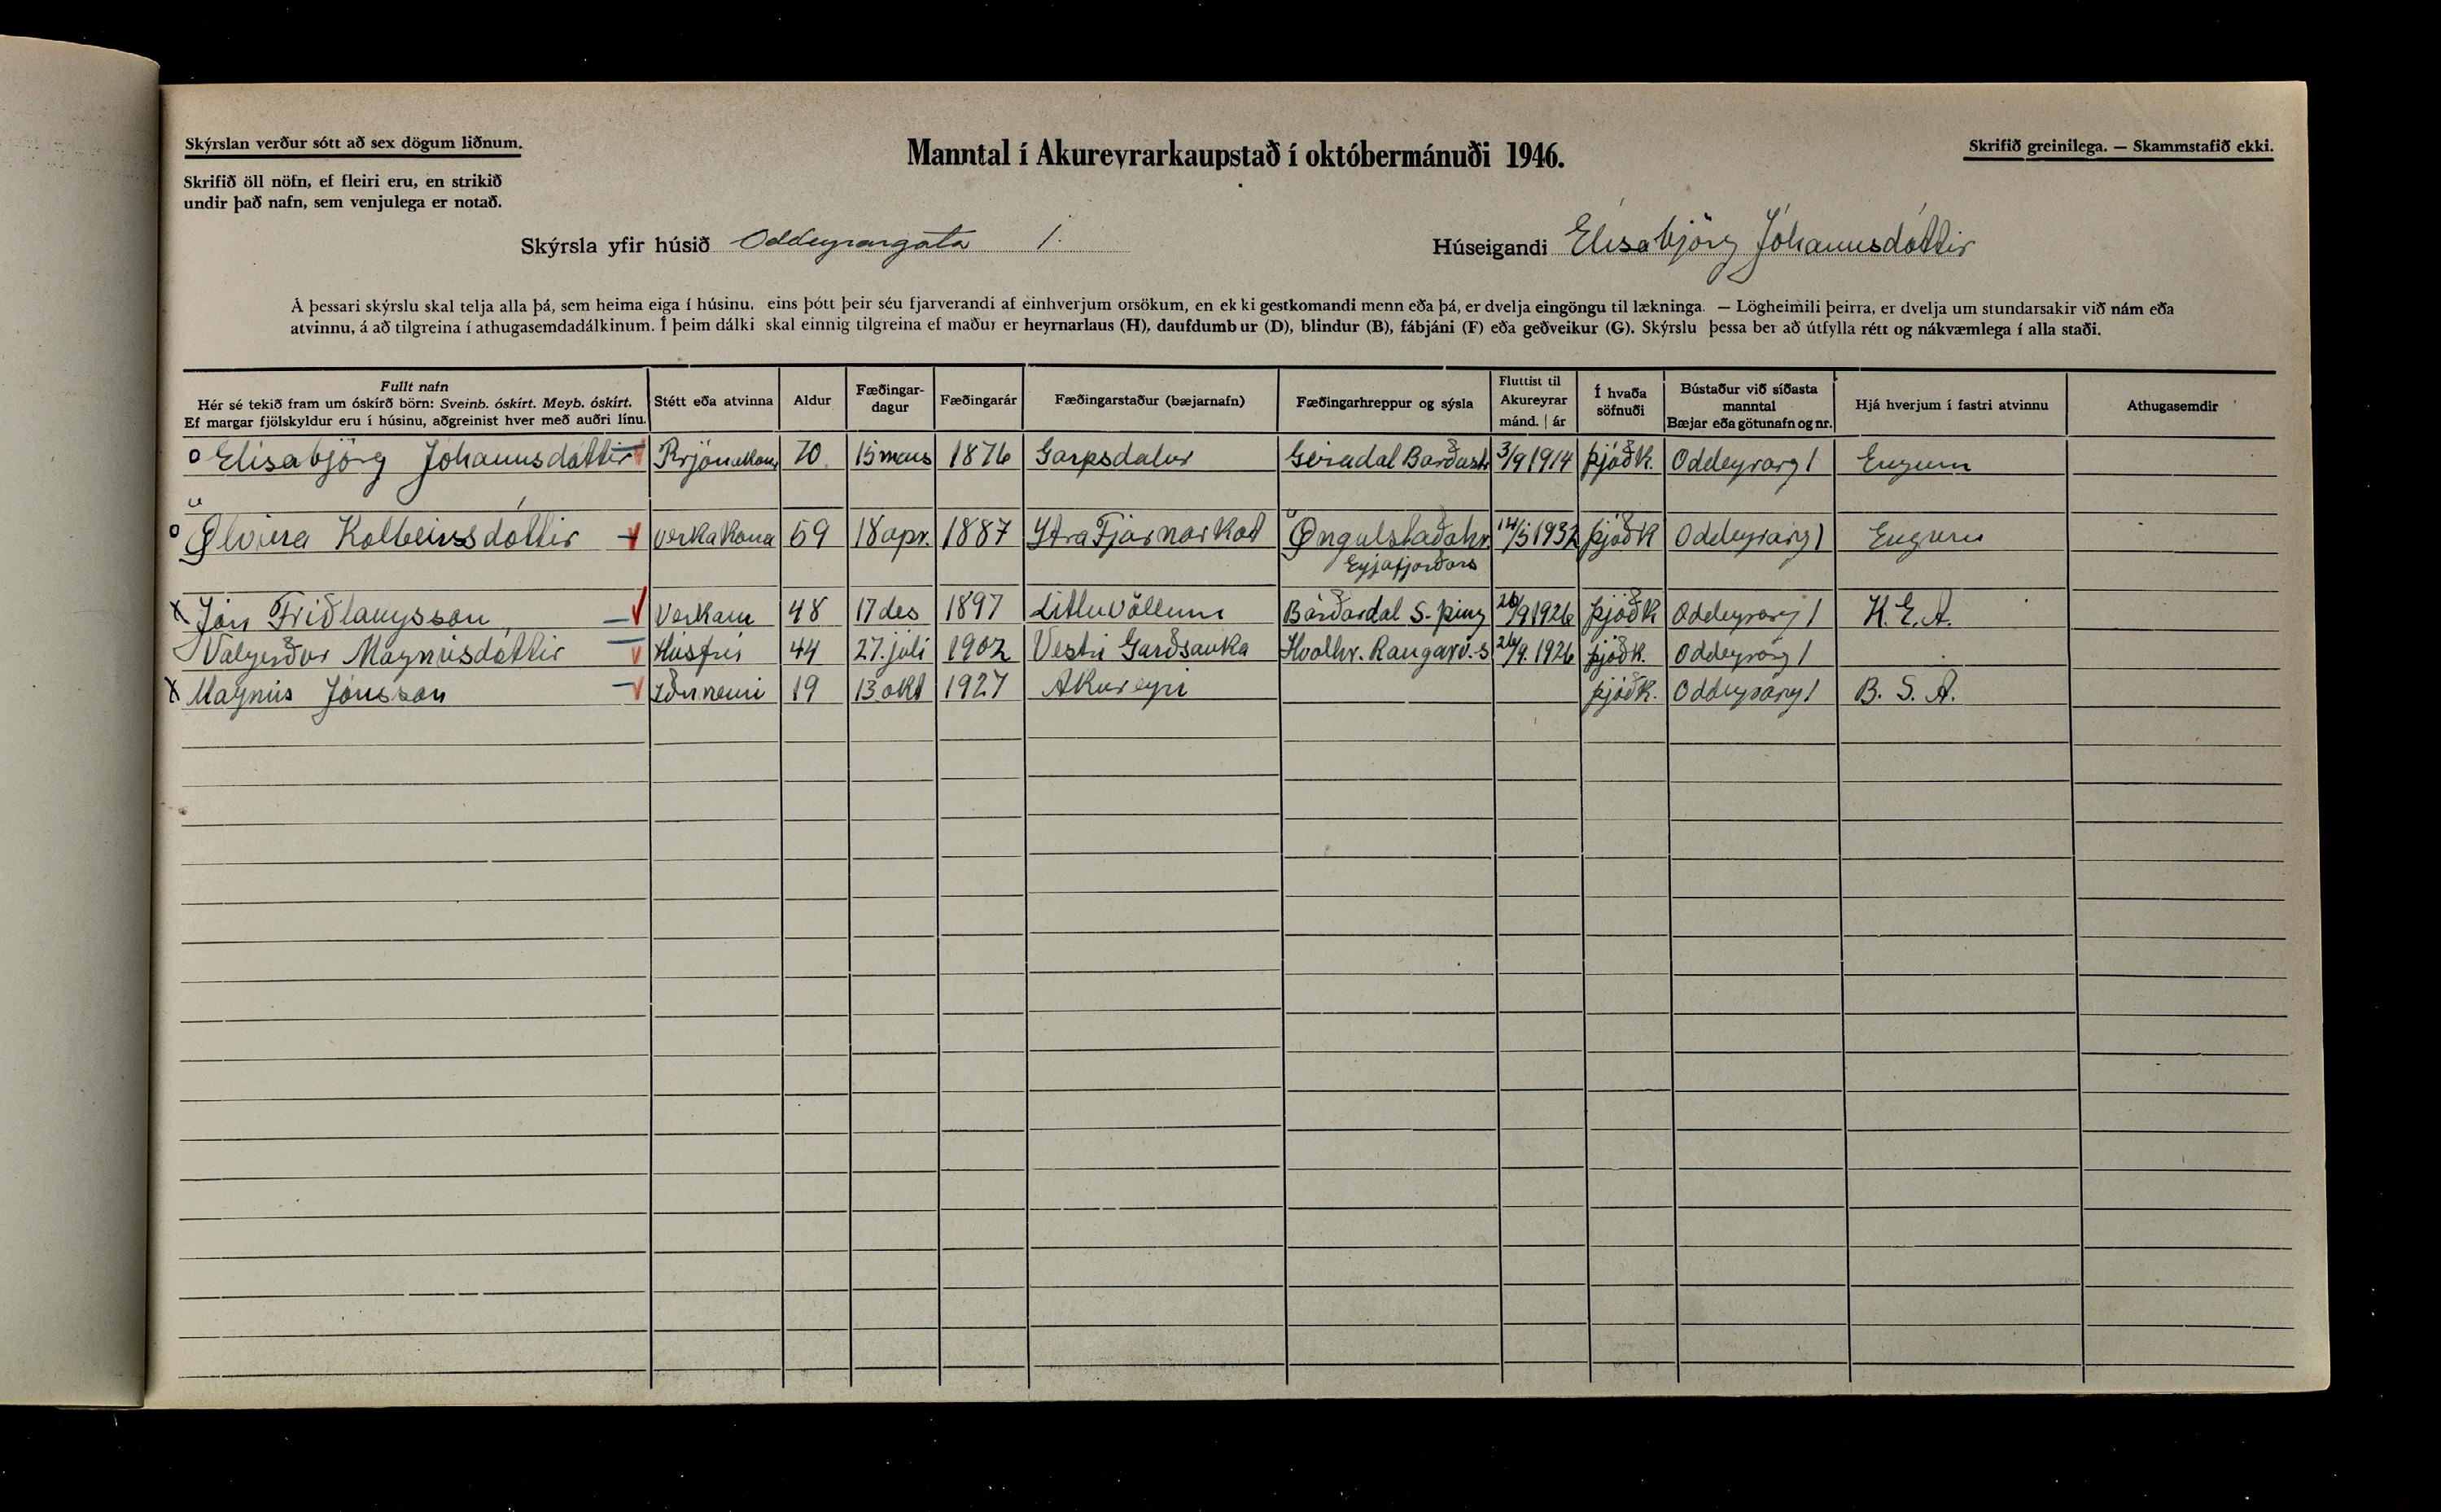 Skýrslan verður sótt að sex dögum liðnum.
Manntal í Akureyrarkaupstað í októbermánuði 1946.
Skrifið greinilega. — Skammstafið ekki.
Skrifið öll nöfn, ef fleiri eru, en strikið
undir það nafn, sem venjulega er notað.
Skýrsla yfir húsið Oddeyrargata 1.
Húseigandi Elísabjörg Jóhannsdóttir
Á þessari skýrslu skal telja alla þá, sem heima eiga í húsinu, eins þótt þeir séu fjarverandi af einhverjum orsökum, en ekki gestkomandi menn eða þá, er dvelja eingöngu til lækninga. — Lögheimili þeirra, er dvelja um stundarsakir við nám eða
atvinnu, á að tilgreina í athugasemdadálkinum. Í þeim dálki skal einnig tilgreina ef maður er heyrnarlaus (H), daufdumbur (D), blindur (B), fábjáni (F) eða geðveikur (G). Skýrslu þessa ber að útfylla rétt og nákvæmlega í alla staði.
Fullt nafn
Hér sé tekið fram um óskírð börn: Sveinb. óskírt. Meyb. óskírt.
Ef margar fjölskyldur eru í húsinu, aðgreinist hver með auðri línu.
Stétt eða atvinna
Aldur
Fæðingar-
dagur
Fæðingarár
Fæðingarstaður (bæjarnafn)
Fæðingarhreppur og sýsla
Fluttist til
Akureyrar
mánd. | ár
Í hvaða
söfnuði
Bústaður við síðasta
manntal
Bæjar eða götunafn og nr.
Hjá hverjum í fastri atvinnu
Athugasemdir
o Elísabjörg Jóhannsdóttir Prjónakona 70 15 mars 1876 Garpsdalur Geiradal Barðastr 3/9 1914 þjóðk. Oddeyrarg 1 Engum
o Ølvina Kolbeinsdóttir verkakona 59 18 apr. 1887 Ytra Fjarnarkot Øngulstaðahr. 14/5 1932 þjóðk Oddeyrarg 1 Engum
Eyjafjarðars
x Jón Friðlaugsson Verkam 48 17 des 1897 Litluvöllum Bárðardal S-þing 26/9 1926 þjóðk Oddeyrarg 1 K. E. A.
Valgerður Magnúsdóttir Húsfrú 44 27. júlí 1902 Vestri Garðsauka Hvolhr. Rangárv.s 26/9. 1926 þjóðk. Oddeyrarg 1
x Magnús Jónsson Iðnnemi 19 13 okt 1927 Akureyri þjóðk. Oddeyrarg 1 B. S. A.